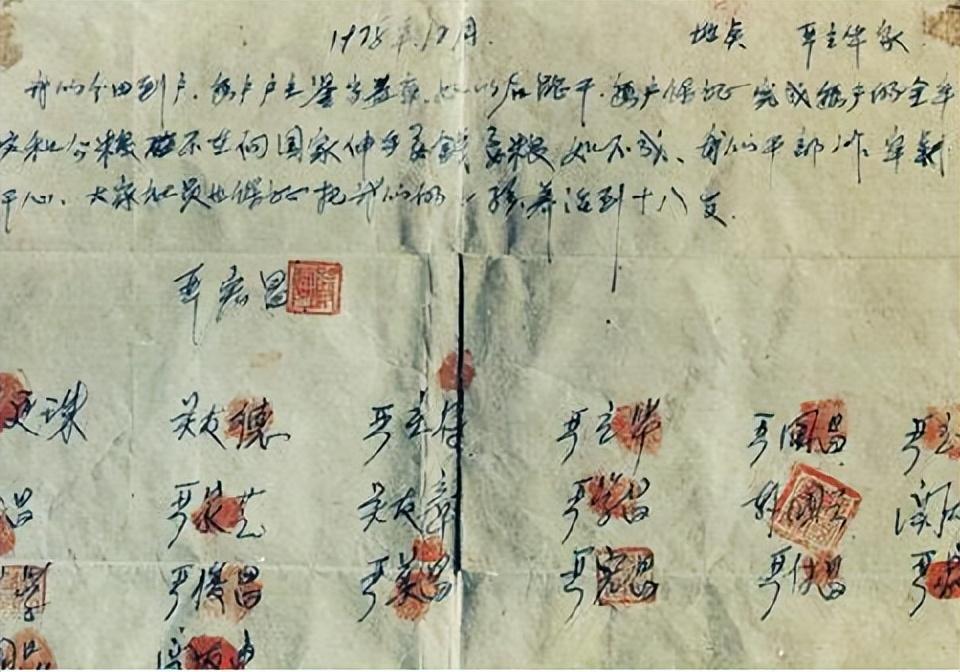 1978年12月. 地点 严立华家
我们分田到户,每户户主签字盖章,如以后能干,每户保证完成每户的全年
交和公粮 不在向国家伸手要钱要粮,如不成,我们干部作牢刹
干心,大家社员也保证把我们的小孩养活到十八岁.
严宏昌
廷珠 关友德 严立符 严立华 严国昌 严立
昌 严家芝 关友章 严学昌 韩国云 关友
学 严俊昌 严美昌 严宏昌 严付昌 严
国品 关友申